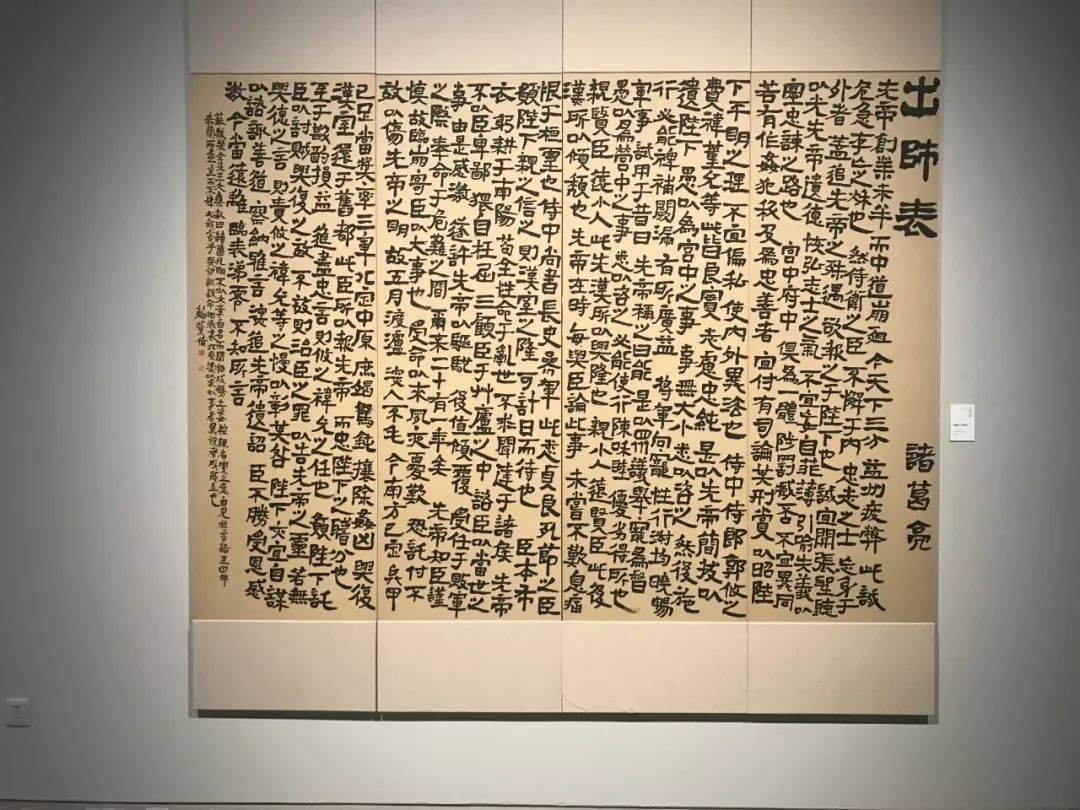 出師表 諸葛亮
先帝創業未半而中道崩殂今天下三分益州疲弊此誠
危急存亡之秋也然侍衛之臣不懈于内忠志之士忘身于
外者蓋追先帝之殊遇欲報之于陛下也誠宜開張聖聽
以光先帝遺德恢弘志士之氣不宜妄自菲薄引喻失義以
塞忠諫之路也宮中府中俱為一體陟罰臧否不宜異同
若有作姦犯科及為忠善者宜付有司論其刑賞以昭陛
下平明之理不宜偏私使内外異法也侍中侍郎郭攸之
費禕董允等此皆良實志慮忠純是以先帝簡拔以
遺陛下愚以為宮中之事事無大小悉以咨之然後施
行必能裨補闕漏有所廣益將軍向寵性行淑均曉暢
軍事試用于昔日先帝稱之曰能是以眾議舉寵為督
愚以為營中之事悉以咨之必能使行陳和睦優劣得所也
親賢臣遠小人此先漢所以興隆也親小人遠賢臣此後
漢所以傾頹也先帝在時每與臣論此事未嘗不歎息痛
恨于桓靈也侍中尚書長史參軍此悉貞良死節之臣
願陛下親之信之則漢室之隆可計日而待也臣本布
衣躬耕于南陽苟全性命于亂世不求聞達于諸侯先帝
不以臣卑鄙猥自枉屈三顧臣于艸廬之中諮臣以當世之
事由是感激遂許先帝以驅馳後值傾覆受任于敗軍
之際奉命于危難之間爾來二十有一年矣先帝知臣謹
慎故臨崩寄臣以大事也受命以來夙夜憂歎恐託付不
效以傷先帝之明故五月渡瀘深入不毛今南方已定兵甲
已足當獎率三軍北定中原庶竭駑鈍攘除姦凶興復
漢室還于舊都此臣所以報先帝而忠陛下之職分也
至于斟酌損益進盡忠言則攸之禕允之任也願陛下託
臣以討賊興復之效不效則治臣之罪以告先帝之靈若無
興德之言則責攸之禕允等之慢以彰其咎陛下亦宜自謀
以諮諏善道察納雅言深追先帝遺詔臣不勝受恩感
激今當遠離臨表涕零不知所言